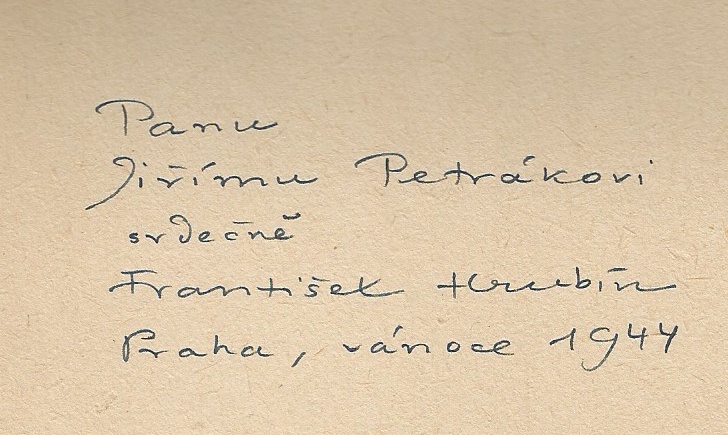 Panu
Jiřímu Petrákovi
srdečně
František Hrubín
Praha, vánoce 1944